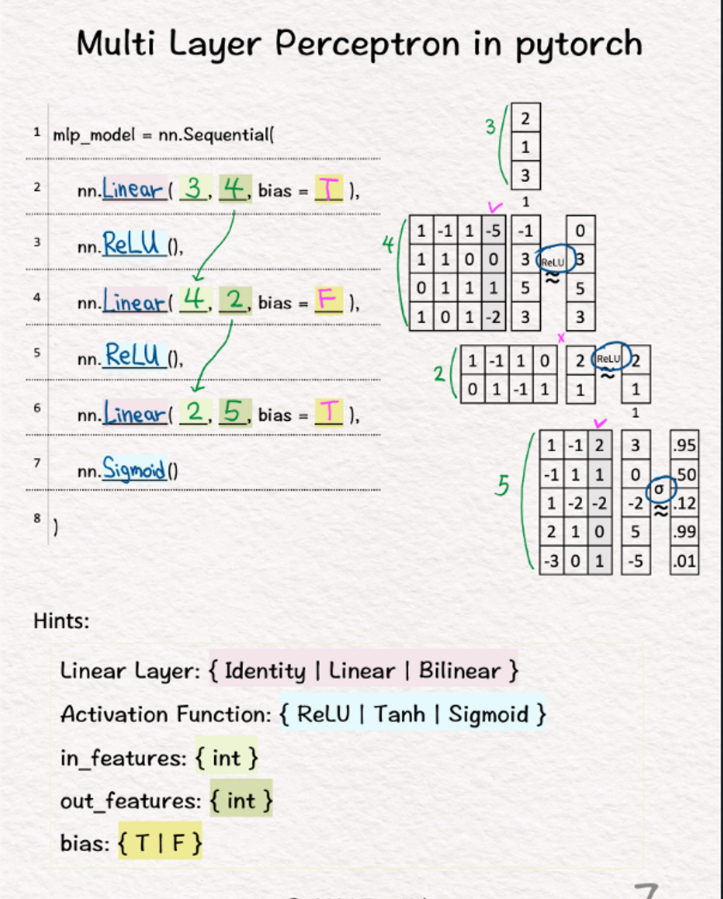 Multi Layer Perceptron in pytorch
1 mlp_model = nn.Sequential(
2 nn.Linear( 3, 4, bias = T ),
3 nn.ReLU(),
4 nn.Linear( 4, 2, bias = F ),
5 nn.ReLU(),
6 nn.Linear( 2, 5, bias = T ),
7 nn.Sigmoid()
8 )
3
2
1
3
✓ 1
4
1 -1 1 -5 -1 0
1 1 0 0 3 ReLU 3
0 1 1 1 5 ≈ 5
1 0 1 -2 3 3
x
2
1 -1 1 0 2 ReLU 2
0 1 -1 1 1 ≈ 1
✓ 1
5
1 -1 2 3 .95
-1 1 1 0 σ .50
1 -2 -2 -2 ≈ .12
2 1 0 5 .99
-3 0 1 -5 .01
Hints:
Linear Layer: { Identity | Linear | Bilinear }
Activation Function: { ReLU | Tanh | Sigmoid }
in_features: { int }
out_features: { int }
bias: { T | F }